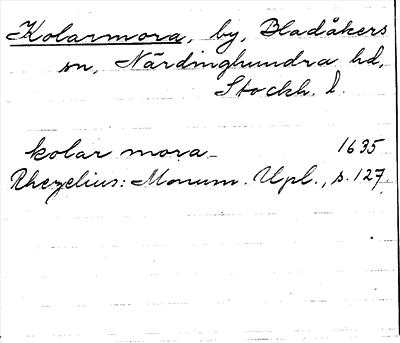 Kolarmora, by, Bladåkers
sn, Närdinghundra hd,
Stockh. l.
kolar mora 1635
Rhezelius: Monum. Upl., s. 127.